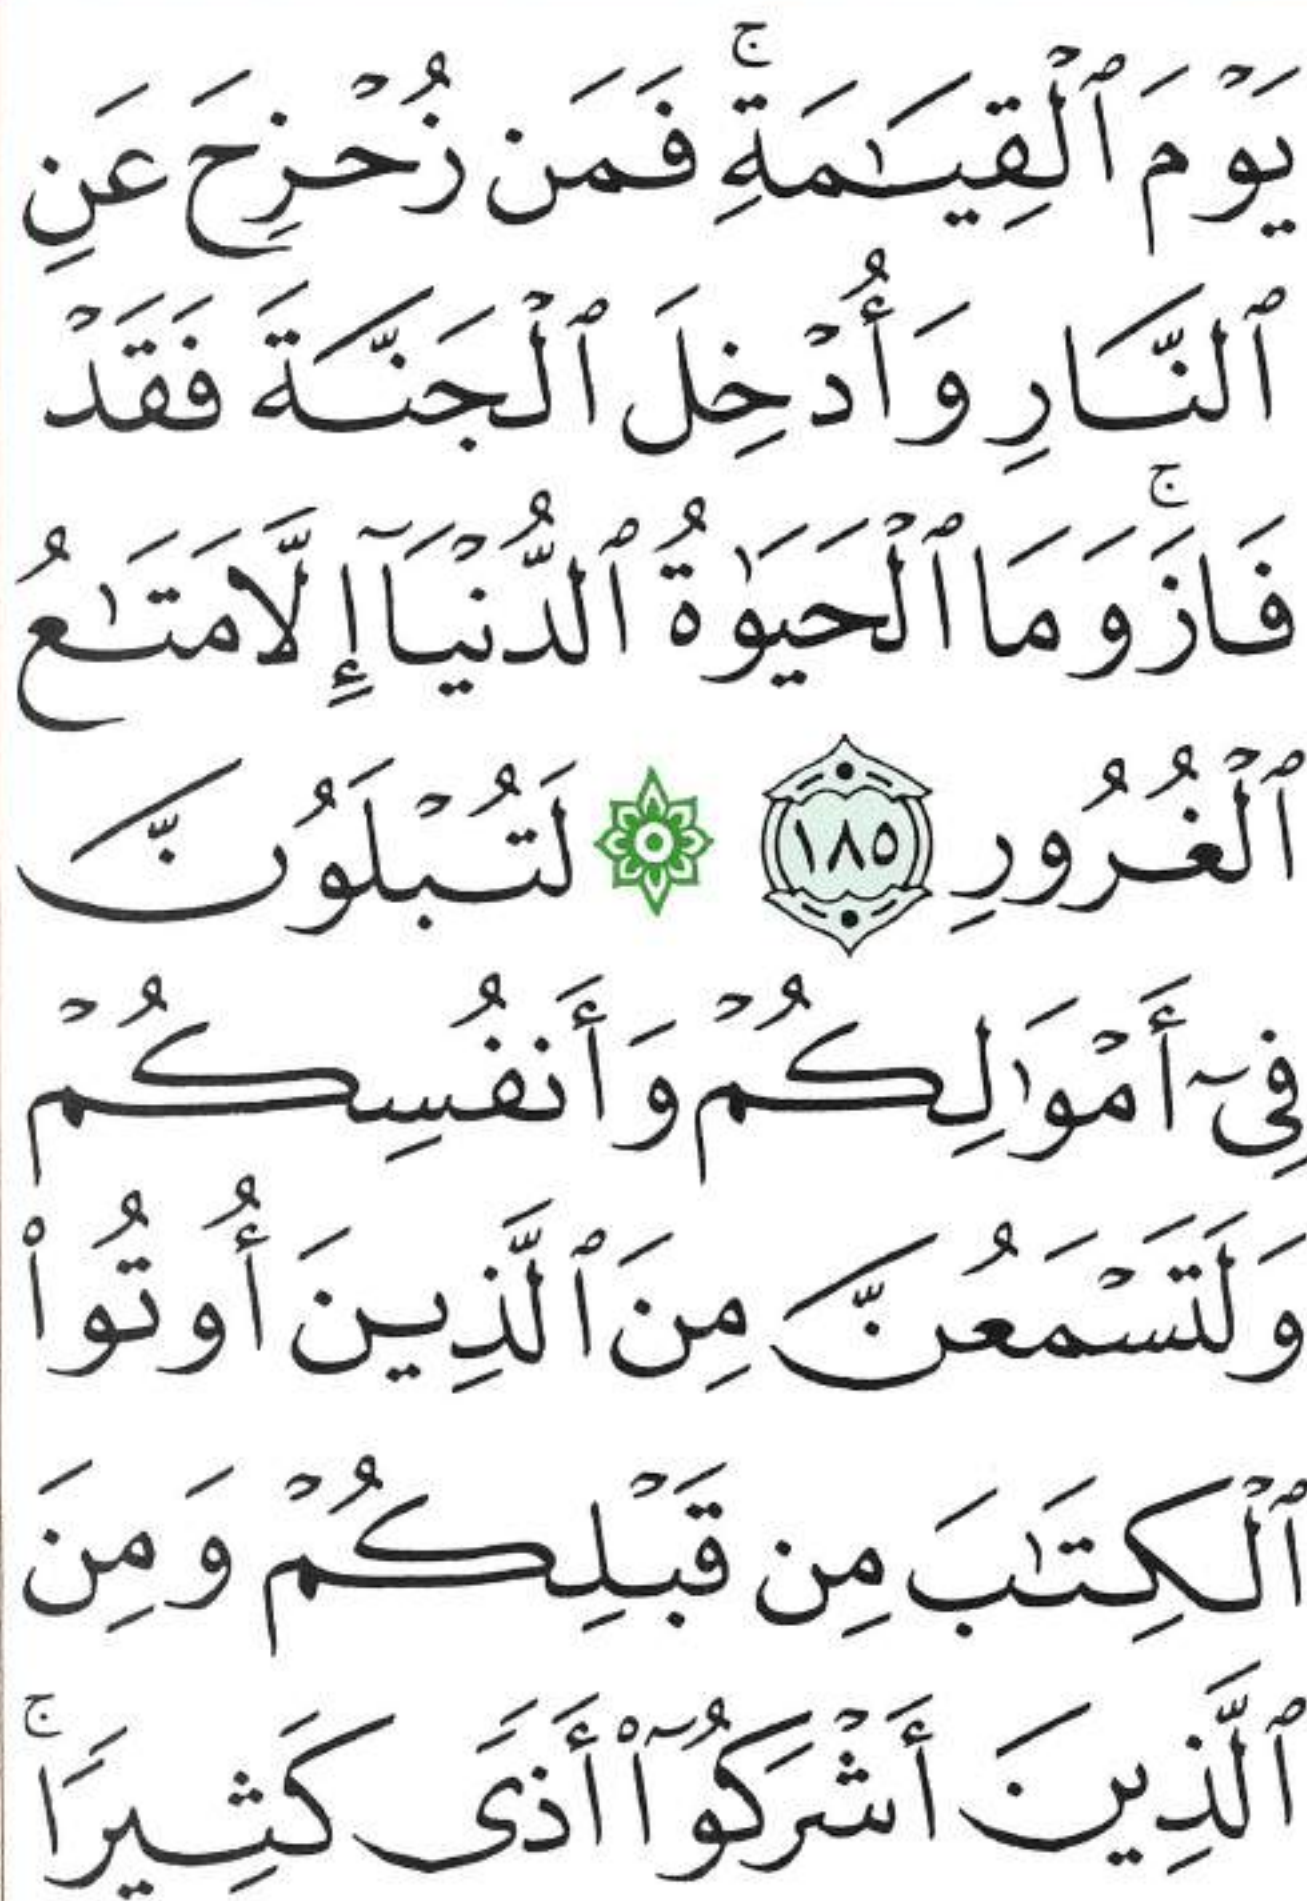 يَوْمَ ٱلْقِيَـٰمَةِ ۖۚ فَمَن زُحْزِحَ عَنِ
ٱلنَّارِ وَأُدْخِلَ ٱلْجَنَّةَ فَقَدْ
فَازَ ۗۚ وَمَا ٱلْحَيَوٰةُ ٱلدُّنْيَآ إِلَّا مَتَـٰعُ
ٱلْغُرُورِ ١٨٥ ۞ لَتُبْلَوُنَّ
فِىٓ أَمْوَٰلِكُمْ وَأَنفُسِكُمْ
وَلَتَسْمَعُنَّ مِنَ ٱلَّذِينَ أُوتُوا۟
ٱلْكِتَـٰبَ مِن قَبْلِكُمْ وَمِنَ
ٱلَّذِينَ أَشْرَكُوٓا۟ أَذًى كَثِيرًا ۚ